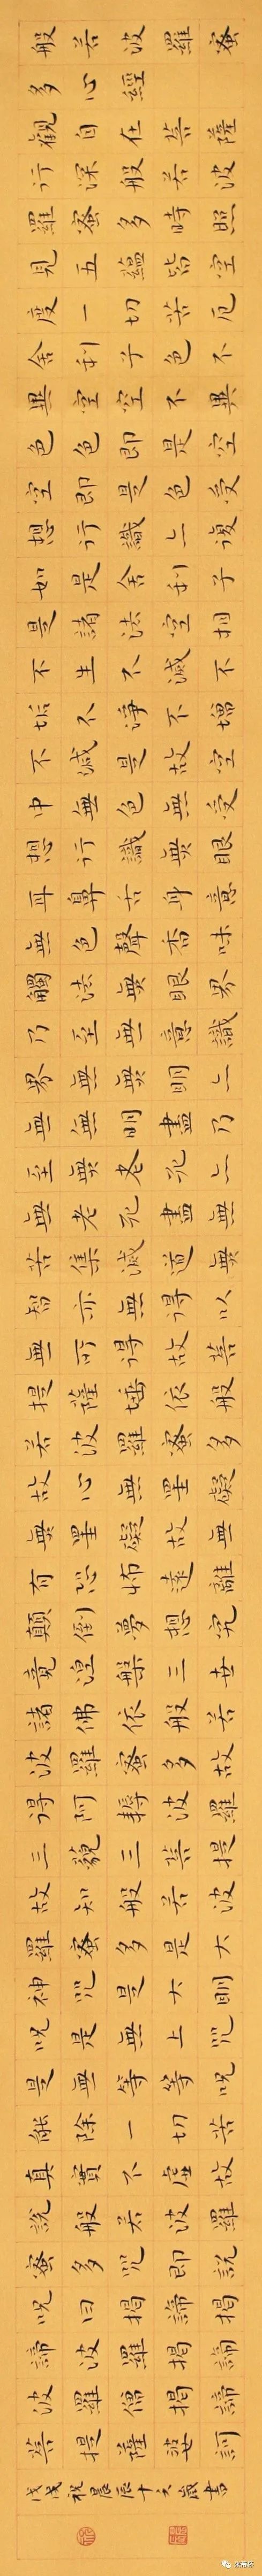 般若波羅蜜
多心經
觀自在菩薩
行深般若波
羅蜜多時照
見五蘊皆空
度一切苦厄
舍利子色不
異空空不異
色色即是空
空即是色受
想行識亦復
如是舍利子
是諸法空相
不生不滅不
垢不淨不增
不減是故空
中無色無受
想行識無眼
耳鼻舌身意
無色聲香味
觸法無眼界
乃至無意識
界無無明亦
無無明盡乃
至無老死亦
無老死盡無
苦集滅道無
智亦無得以
無所得故菩
提薩埵依般
若波羅蜜多
故心無罣礙
無罣礙故無
有恐怖遠離
顛倒夢想究
竟涅槃三世
諸佛依般若
波羅蜜多故
得阿耨波羅
三藐三菩提
故知般若波
羅蜜多是大
神咒是大明
咒是無上咒
是無等等咒
能除一切苦
真實不虛故
說般若波羅
蜜多咒即說
咒曰揭諦揭
諦波羅揭諦
波羅僧揭諦
菩提薩婆訶
戊戌祝晨辰十六歲書